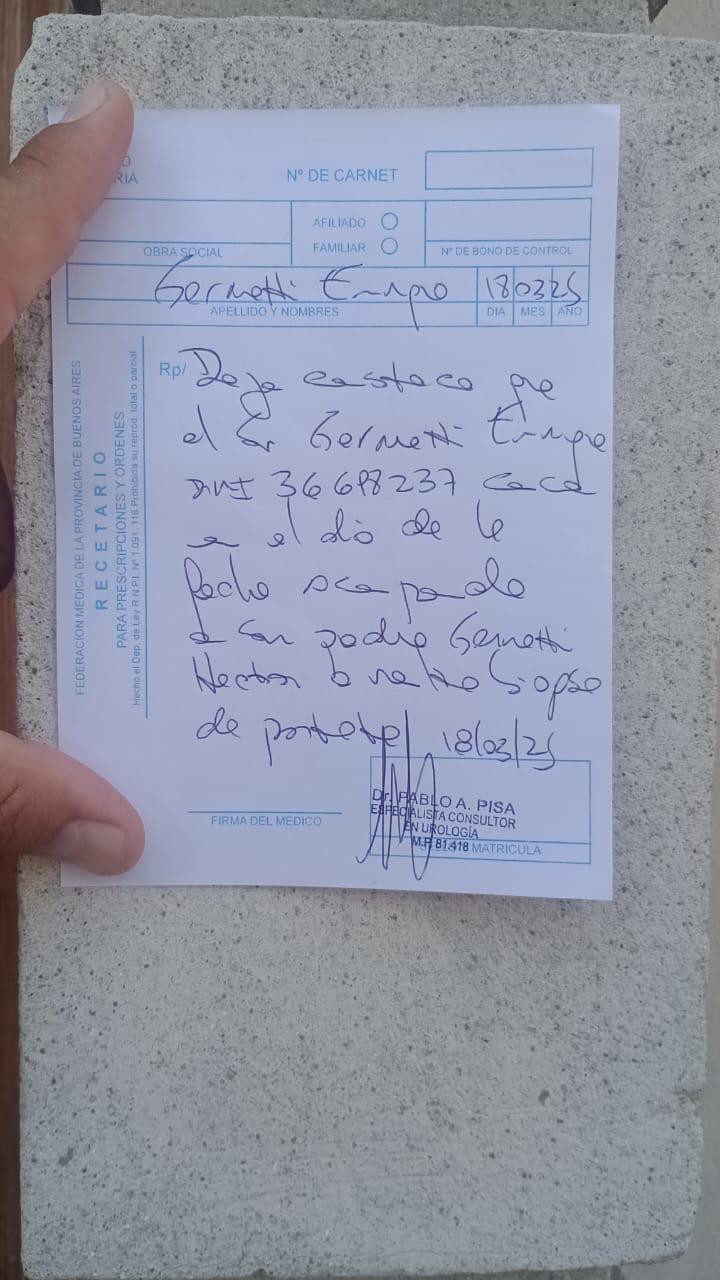 O
RIA
Nº DE CARNET
OBRA SOCIAL
AFILIADO
FAMILIAR
Nº DE BONO DE CONTROL
Germetti
APELLIDO Y NOMBRES
18 03 25
DIA MES AÑO
FEDERACION MEDICA DE LA PROVINCIA DE BUENOS AIRES
RECETARIO
PARA PRESCRIPCIONES Y ORDENES
Hecho el Dep. de Ley R.N.P.I. Nº 1.091. 116 Prohibida su reprod. total o parcial
Rp/ Dejo constancia que
el Sr Germetti
DNI 36698237
en el día de la
fecha acompañando
a su padre Germetti
Hector a realizar biopsia
de prostata 18/03/25
FIRMA DEL MEDICO
Dr. PABLO A. PISA
ESPECIALISTA CONSULTOR
EN UROLOGÍA
M.P. 81.418 MATRICULA